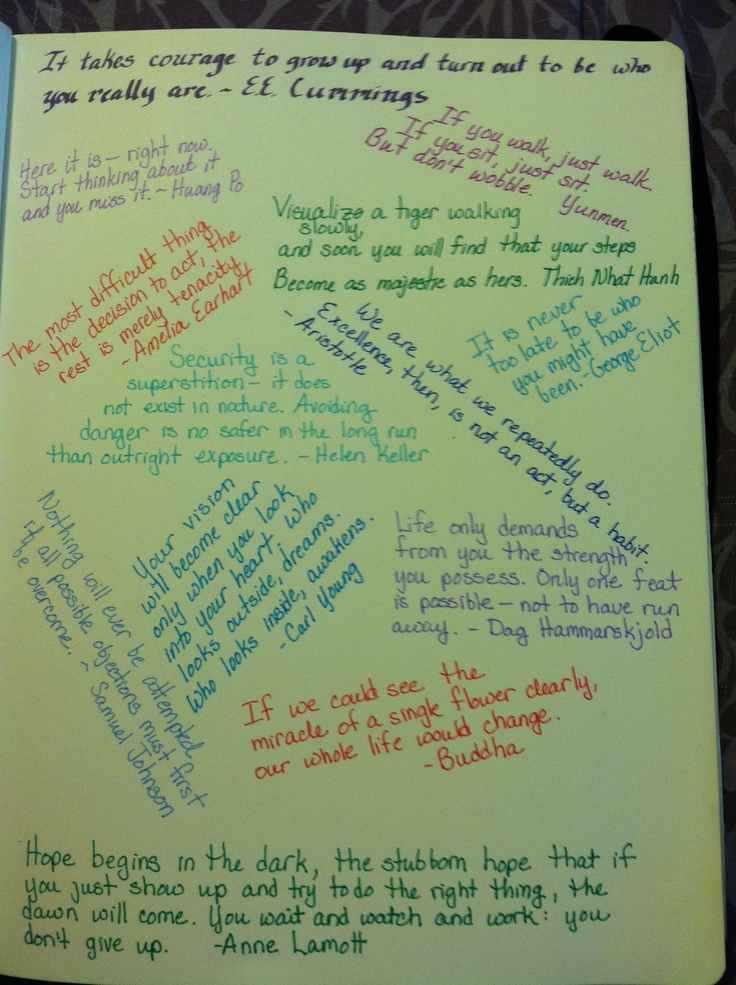 It takes courage to grow up and turn out to be who
you really are. - E.E. Cummings
Here it is - right now.
Start thinking about it
and you miss it. ~ Huang Po
If you walk, just walk.
If you sit, just sit.
But don't wobble.
Yunmen
Visualize a tiger walking
slowly,
and soon you will find that your steps
Become as majestic as hers. Thich Nhat Hanh
The most difficult thing
is the decision to act, the
rest is merely tenacity
- Amelia Earhart
We are what we repeatedly do.
Excellence, then, is not an act, but a habit.
- Aristotle
It is never
too late to be who
you might have
been. - George Eliot
Security is a
superstition - it does
not exist in nature. Avoiding
danger is no safer in the long run
than outright exposure. - Helen Keller
Nothing will ever be attempted
if all possible objections must first
be overcome. - Samuel Johnson
Your vision
will become clear
only when you look
into your heart; who
looks outside, dreams.
who looks inside, awakens.
- Carl Young
Life only demands
from you the strength
you possess. Only one feat
is possible - not to have run
away. - Dag Hammarskjold
If we could see the
miracle of a single flower clearly,
our whole life would change.
- Buddha
Hope begins in the dark, the stubborn hope that if
you just show up and try to do the right thing, the
dawn will come. You wait and watch and work: you
don't give up. - Anne Lamott